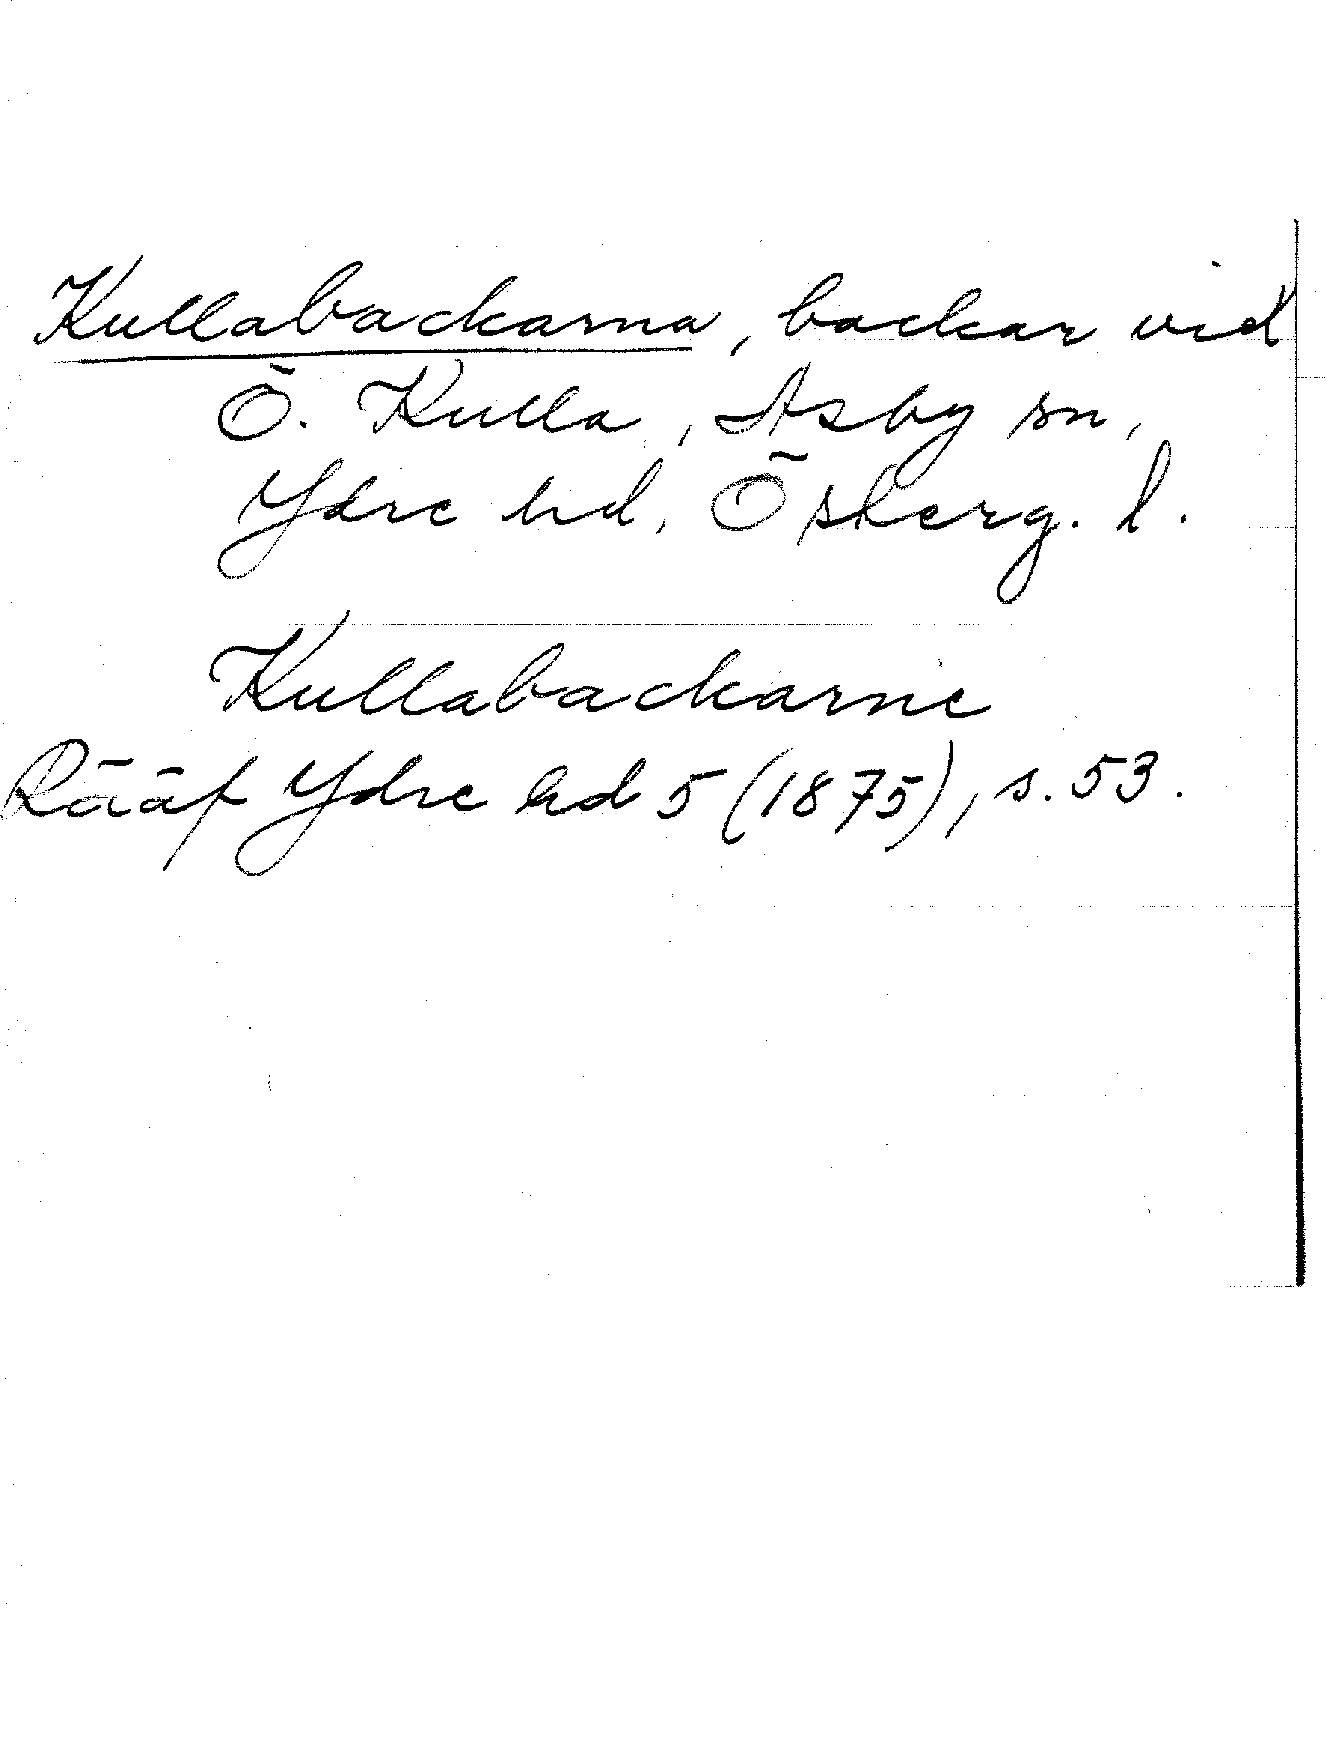 Kullabackarna, backar vid
Ö. Kulla, Asby sn,
Ydre hd, Österg. l.
Kullabackarne
Rääf Ydre hd 5 (1875), s. 53.